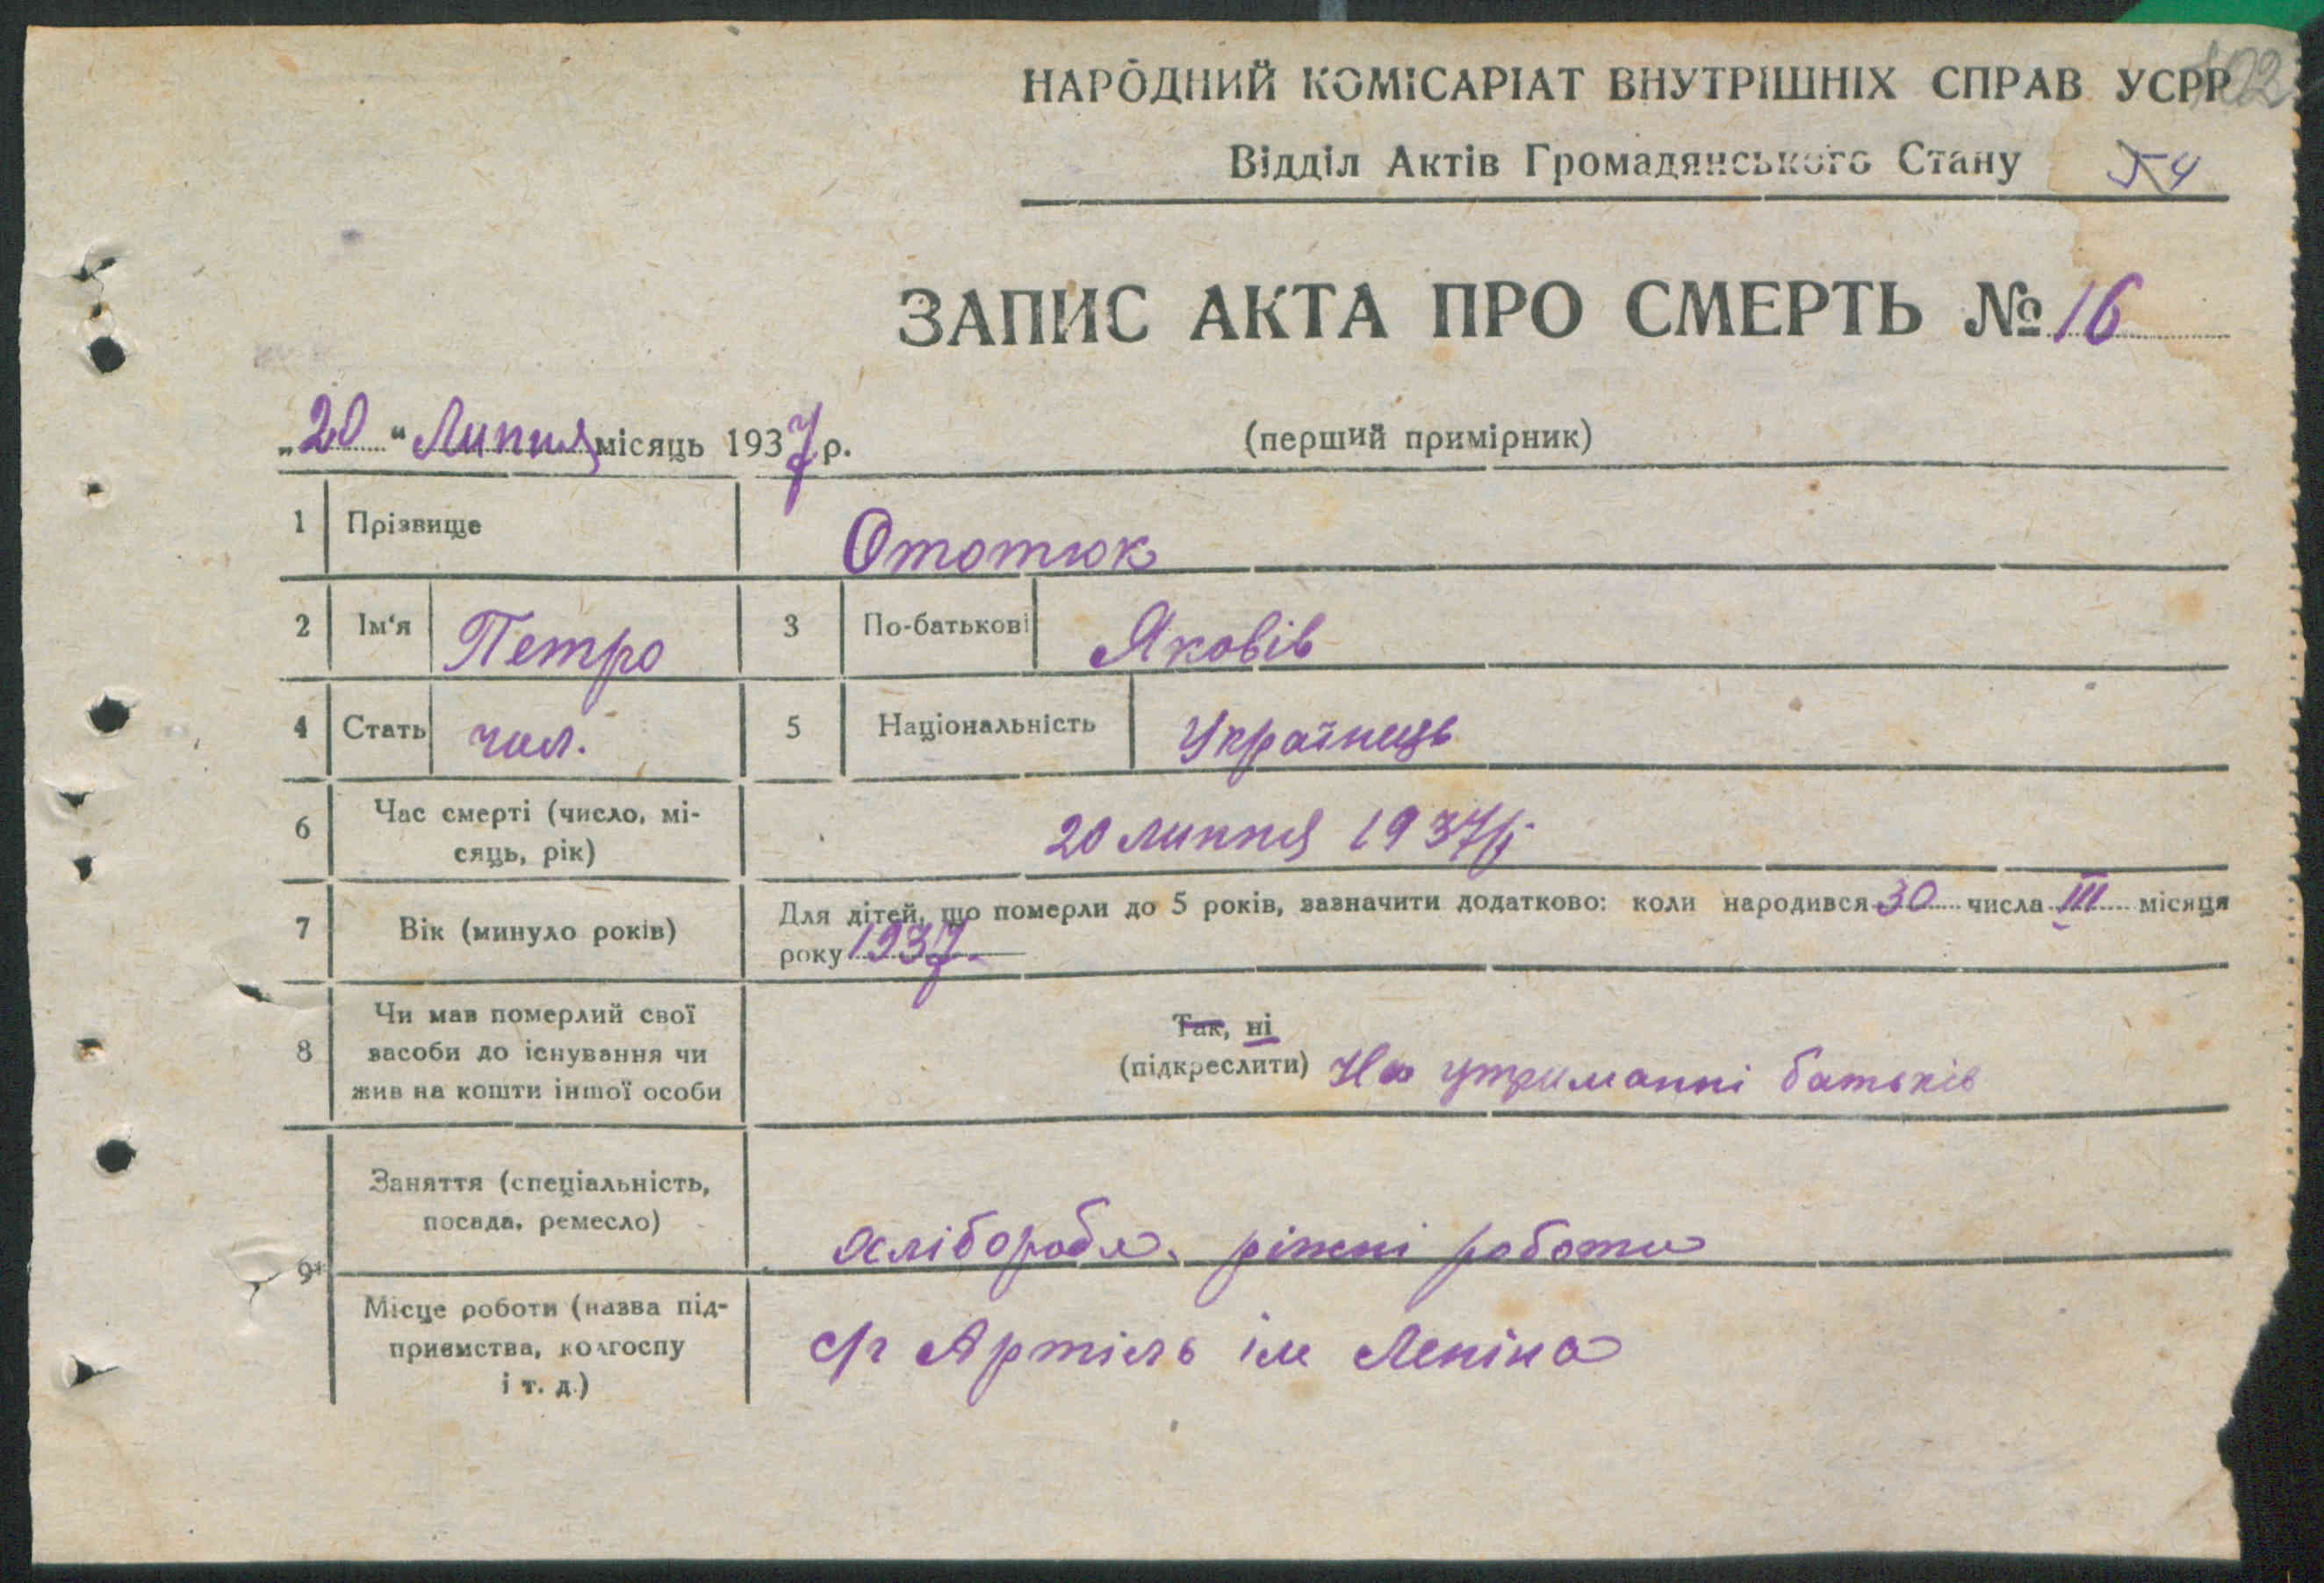 НАРОДНИЙ КОМІСАРІАТ ВНУТРІШНІХ СПРАВ УСРР
Відділ Актів Громадянського Стану
ЗАПИС АКТА ПРО СМЕРТЬ № 16
„20“ Липня місяць 1937 р. (перший примірник)
1 Прізвище Ототюк
2 Ім‘я Петро 3 По-батькові Яковів
4 Стать чол. 5 Національність Українець
6 Час смерті (число, мі-
сяць, рік) 20 липня 1937 р.
7 Вік (минуло років) Для дітей, що померли до 5 років, зазначити додатково: коли народився 30 числа III місяця
року 1937.
8 Чи мав померлий свої
засоби до існування чи
жив на кошти іншої особи
Так, ні
(підкреслити) На утриманні батьків
9 Заняття (спеціальність,
посада, ремесло) хлібороба. ріжні роботи
Місце роботи (назва під-
приємства, колгоспу
і т. д.) с/г Артіль ім Леніна